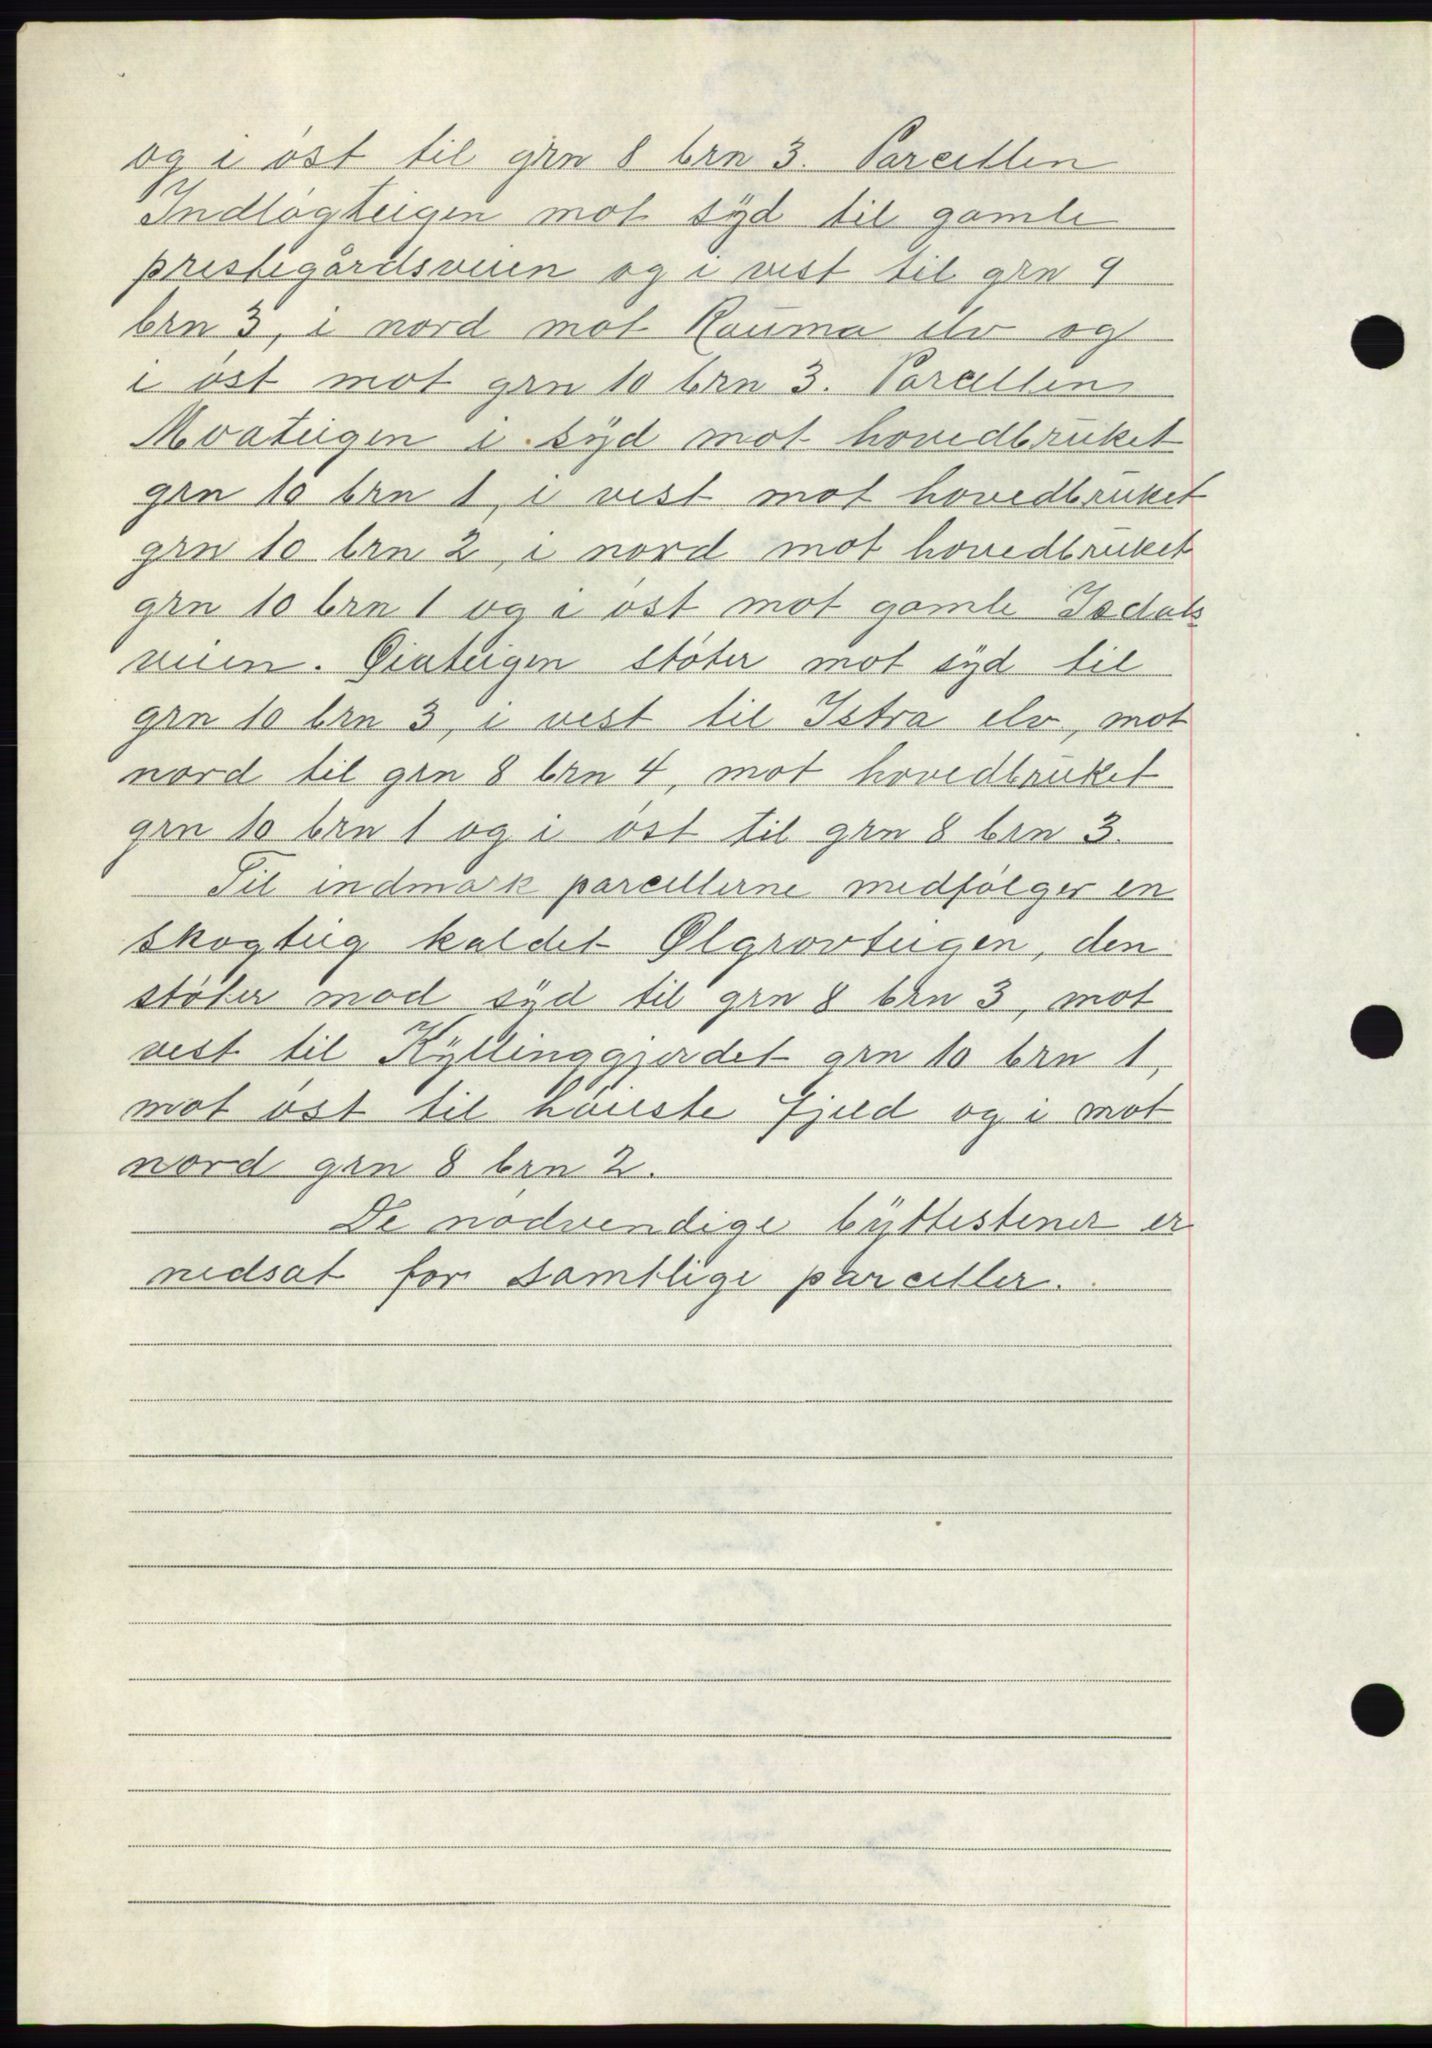 og i øst til grn 8 brn 3. Parcellen
Indløgteigen mot syd til gamle
prestegårdsveien og i vest til grn 9
brn 3, i nord mot Rauma elv og
i øst mot grn 10 brn 3. Parcellen
Moateigen i syd mot hovedbruket
grn 10 brn 1, i vest mot hovedbruket
grn 10 brn 2, i nord mot hovedbruket
grn 10 brn 1 og i øst mot gamle Isdals
veien. Øiateigen støter mot syd til
grn 10 brn 3, i vest til Istra elv, mot
nord til grn 8 brn 4, mot hovedbruket
grn 10 brn 1 og i øst til grn 8 brn 3.
Til indmark parcellerne medfølger en
skogteig kaldet Ølgrovteigen, den
støter mod syd til grn 8 brn 3, mot
vest til Kyllinggjerdet grn 10 brn 1,
mot øst til høieste fjeld og i mot
nord grn 8 brn 2.
De nødvendige byttestener er
nedsat for samtlige parceller.